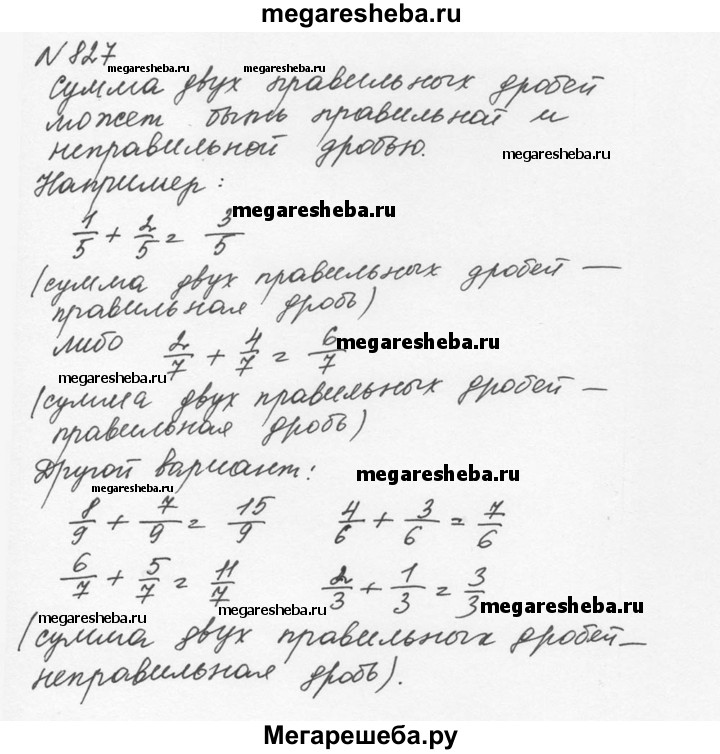 megaresheba.ru
N 827
megaresheba.ru megaresheba.ru
Сумма двух правильных дробей
может быть правильной и
неправильной дробью.
megaresheba.ru
Например:
1/5 + 2/5 = 3/5
megaresheba.ru
(сумма двух правильных дробей —
правильная дробь)
либо 2/7 + 4/7 = 6/7
megaresheba.ru
megaresheba.ru
(сумма двух правильных дробей —
правильная дробь)
Другой вариант:
megaresheba.ru
megaresheba.ru
8/9 + 7/9 = 15/9 4/6 + 3/6 = 7/6
6/7 + 5/7 = 11/7 2/3 + 1/3 = 3/3
megaresheba.ru megaresheba.ru megaresheba.ru
(сумма двух правильных дробей —
неправильная дробь).
Мегарешеба.ру